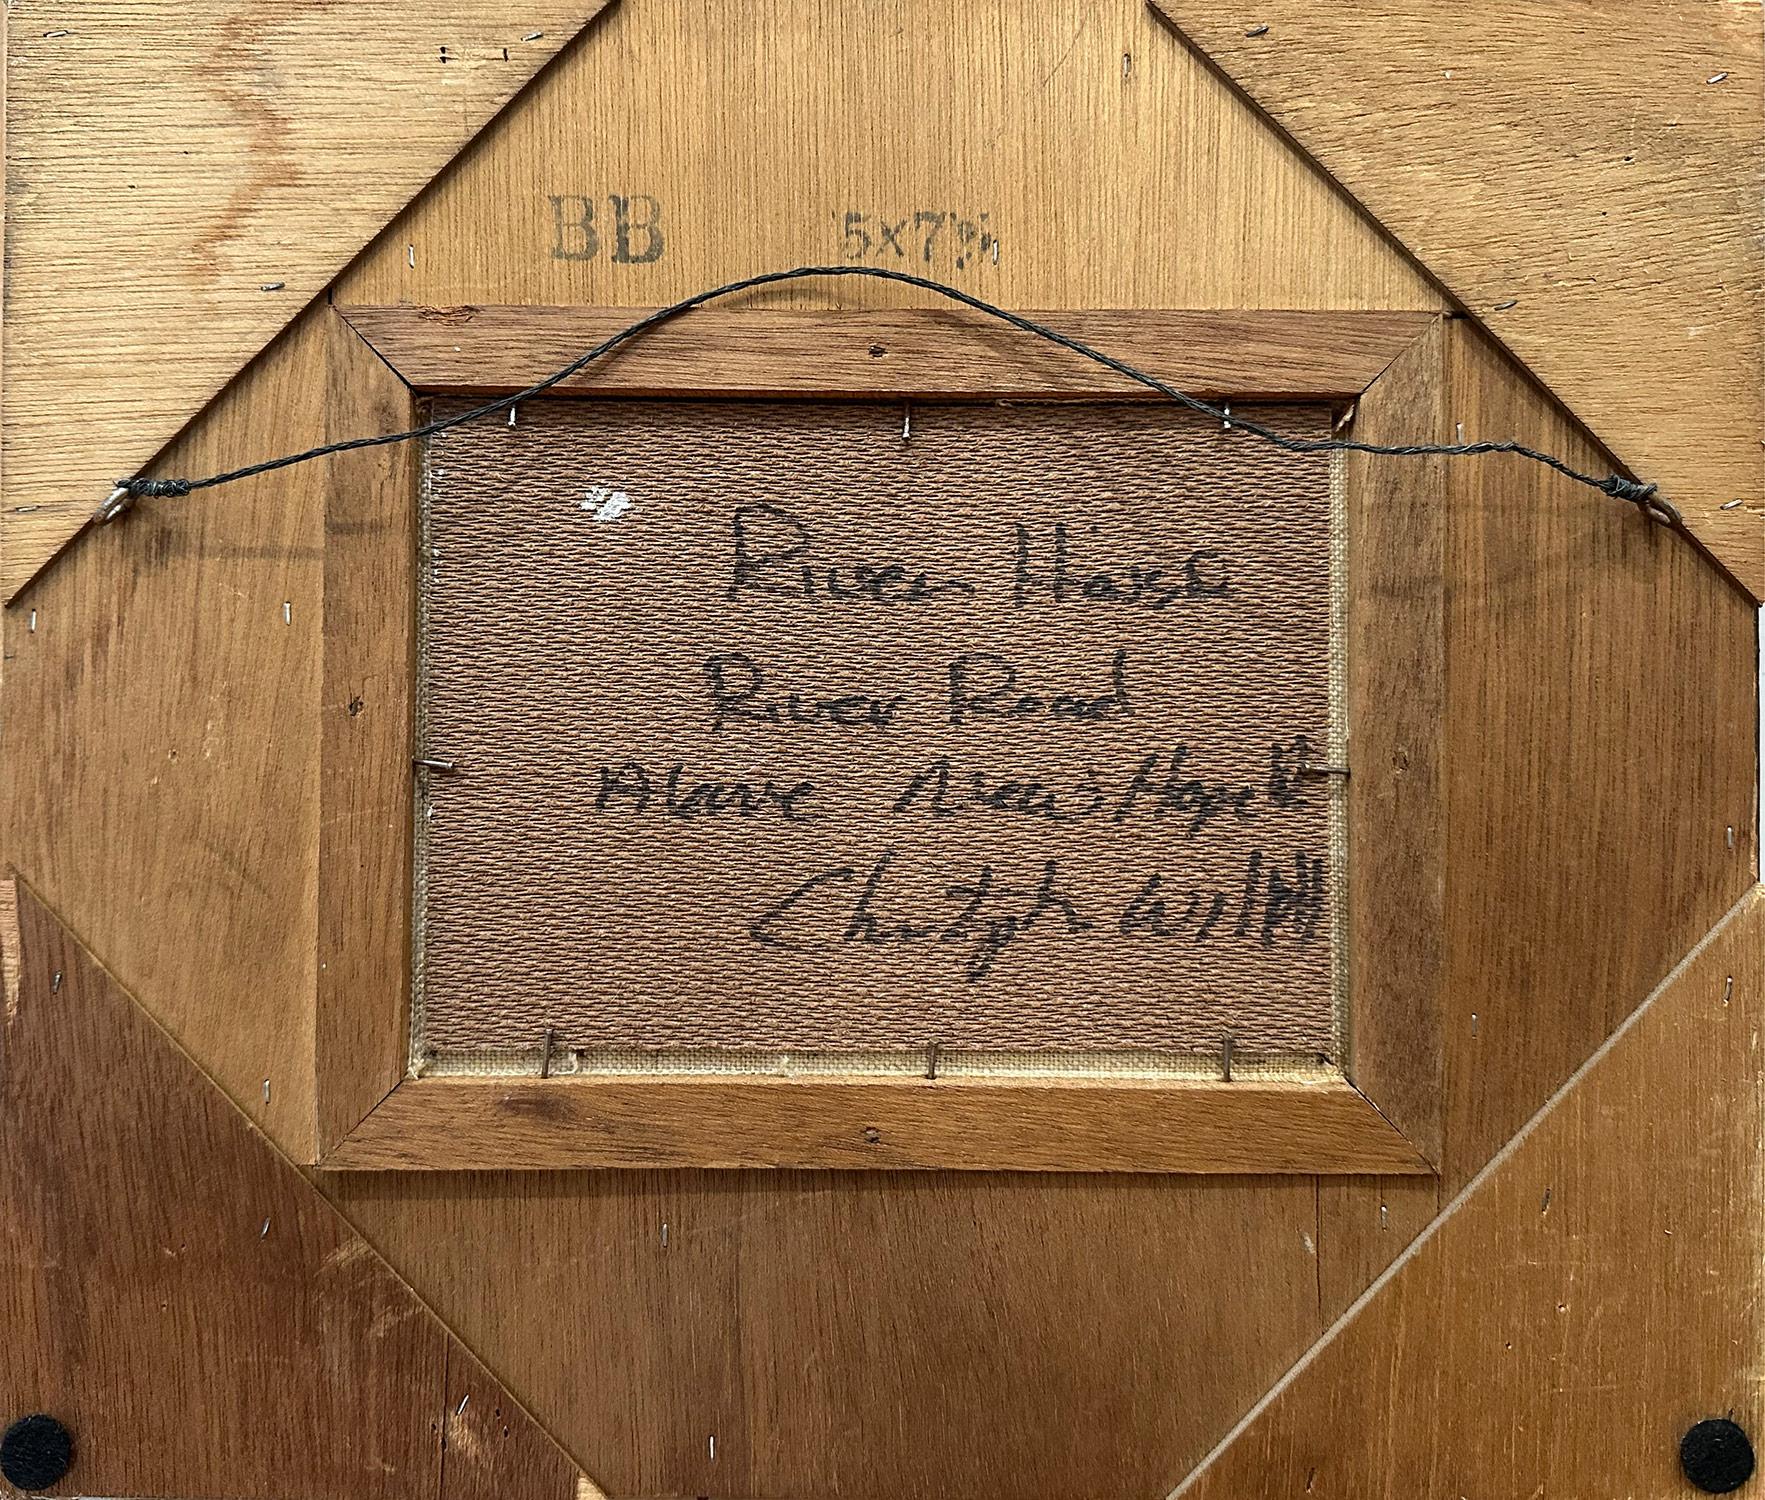 BB 5x7
River House
River Road
Above New Hope
Christoph Will